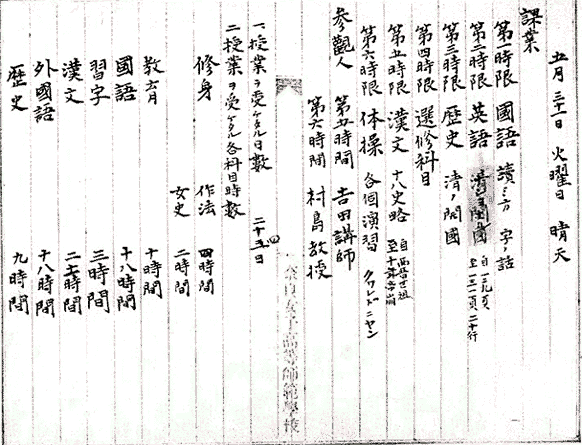 五月三十一日 火曜日 晴天
課業
第一時限 國語 讀ミ方 字ノ話
第二時限 英語 自一二九頁 至一三一頁二十行
第三時限 歴史 清ノ開國
第四時限 選修科目
第五時限 漢文 十八史略 自西晋世祖
第六時限 体操 各個演習 クワドリニヤン
参觀人 第五時間 吉田講師
第六時間 村島教授
奈良女子高等師範學校
一、授業ヲ受ケタル日數 二十五日
二、授業ヲ受ケタル各科目時數
修身 作法 四時間
女史 二時間
教育 十時間
國語 十八時間
習字 三時間
漢文 二十時間
外國語 十八時間
歴史 九時間